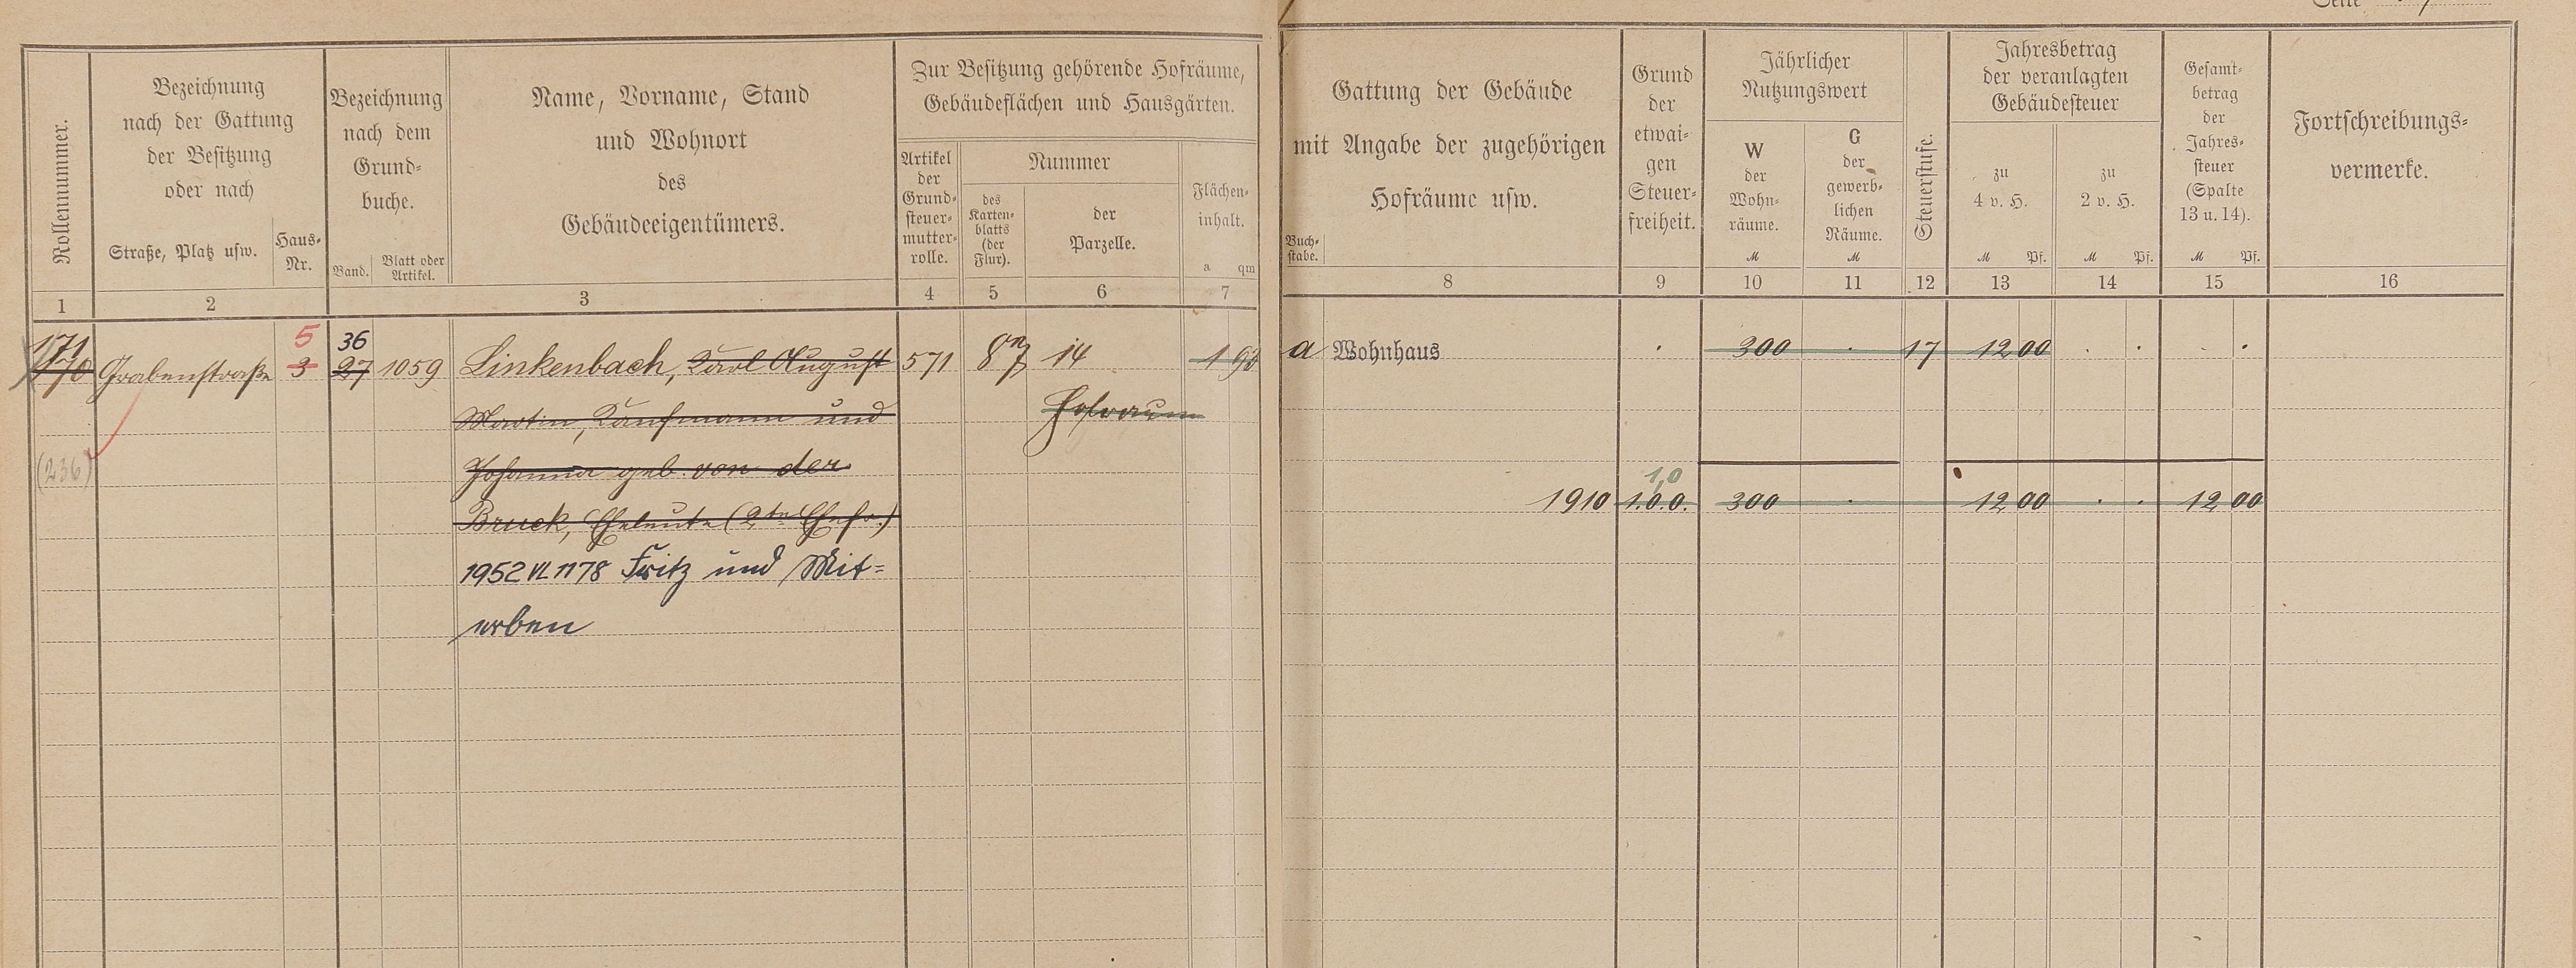 Seite
Rollennummer.
Bezeichnung
nach der Gattung
der Besitzung
oder nach
Straße, Platz usw.
Haus-
Nr.
Bezeichnung
nach dem
Grund-
buche.
Band.
Blatt oder
Artikel.
Name, Vorname, Stand
und Wohnort
des
Gebäudeeigentümers.
Zur Besitzung gehörende Hofräume,
Gebäudeflächen und Hausgärten.
Artikel
der
Grund-
steuer-
mutter-
rolle.
Nummer
des
Karten-
blatts
(der
Flur).
der
Parzelle.
Flächen-
inhalt.
a qm
Gattung der Gebäude
mit Angabe der zugehörigen
Hofräume usw.
Buch-
stabe.
Grund
der
etwai-
gen
Steuer-
freiheit.
Jährlicher
Nutzungswert
W
der
Wohn-
räume.
M
G
der
gewerb-
lichen
Räume.
M
Steuerstufe.
Jahresbetrag
der veranlagten
Gebäudesteuer
zu
4 v. H.
M Pf.
zu
2 v. H.
M Pf.
Gesamt-
betrag
der
Jahres-
steuer
(Spalte
13 u. 14).
M Pf.
Fortschreibungs-
vermerke.
1 2 3 4 5 6 7 8 9 10 11 12 13 14 15 16
171 5 36
170 Grabenstraße 3 27 1059 Linkenbach, Karl August 571 8 14 1 93 a Wohnhaus 300 17 12 00
Martin, Kaufmann und Hofraum
(236) Johanna geb. von der
1,0
Bruck, Eheleute (2te Ehefr.) 1910 1.0.0. 300 12 00 12 00
1952 VI 1178 Fritz und Mit-
erben